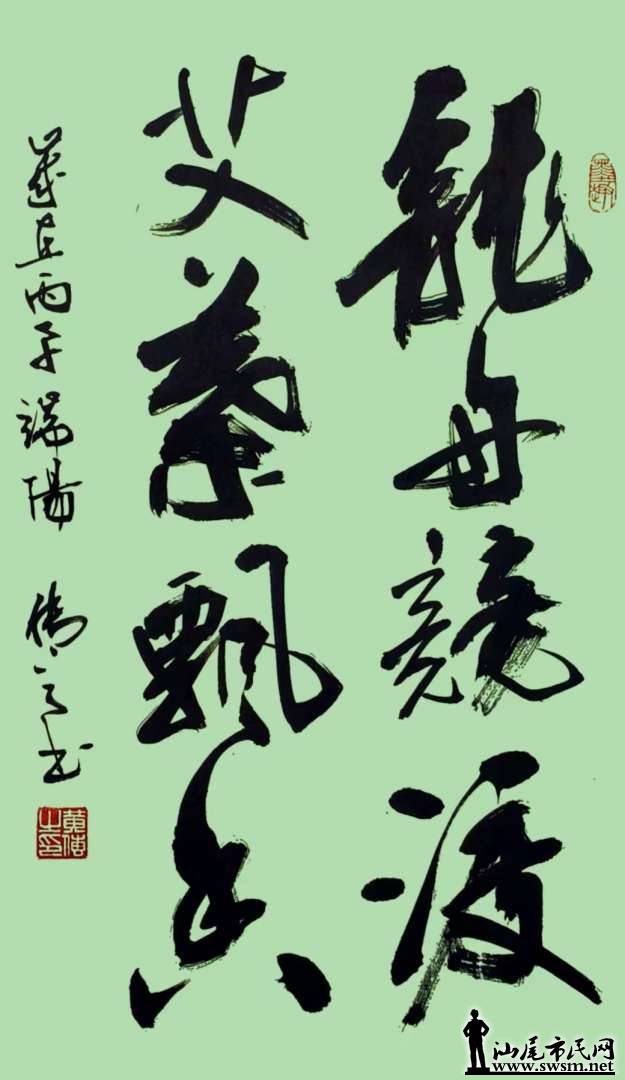 龍舟競渡
艾葉飄香
歲在丙午端陽 書
汕尾市民网
www.swsm.net